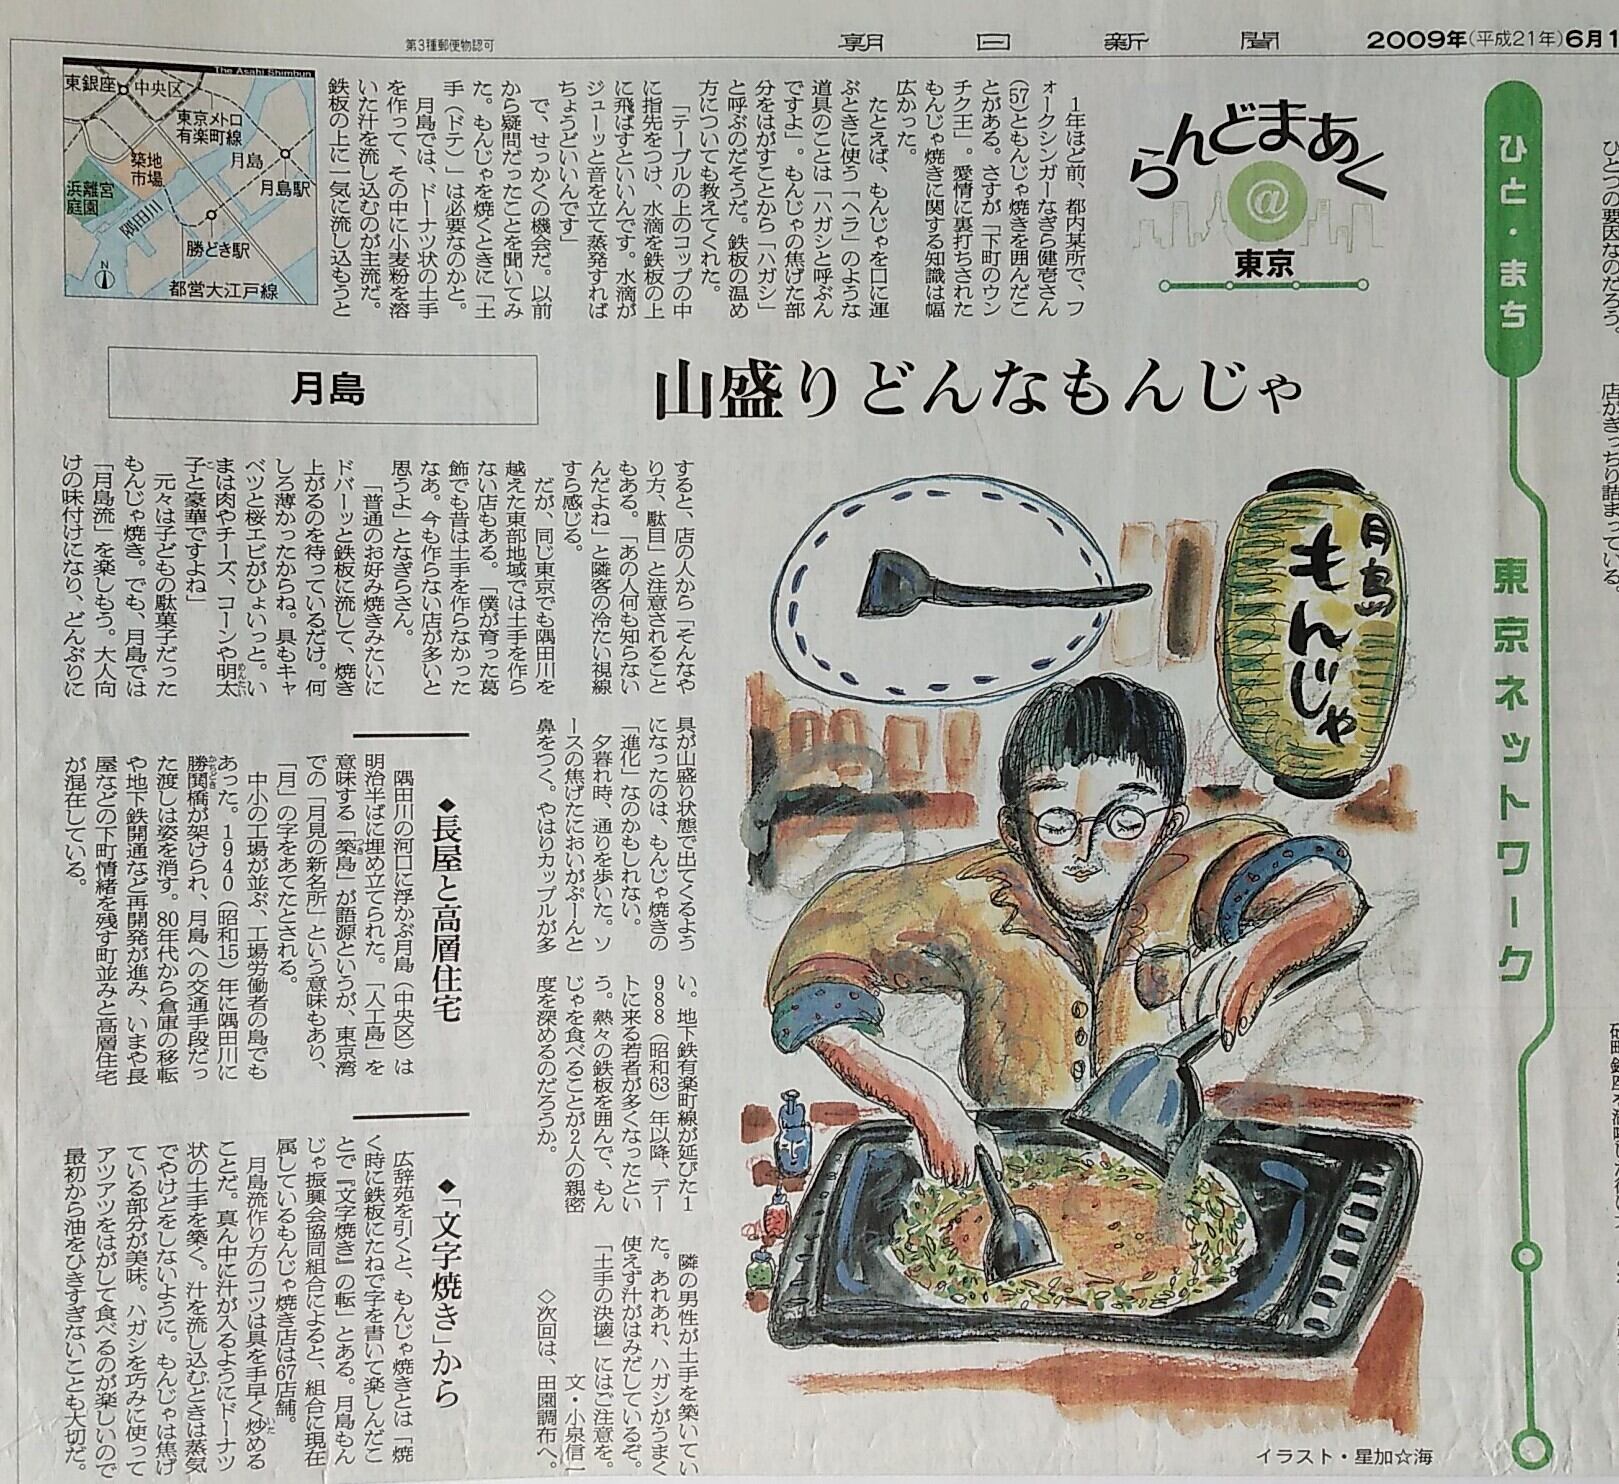 第3種郵便物認可
朝日新聞
2009年(平成21年)6月1
ひと・まち
東京ネットワーク
らんどまあく
@
東京
The Asahi Shimbun
東銀座
中央区
東京メトロ
有楽町線
築地
市場
月島
月島駅
浜離宮
庭園
隅田川
勝どき駅
N
都営大江戸線
山盛りどんなもんじゃ
月島
　1年ほど前、都内某所で、フ
ォークシンガーなぎら健壱さん
(57)ともんじゃ焼きを囲んだこ
とがある。さすが「下町のウン
チク王」。愛情に裏打ちされた
もんじゃ焼きに関する知識は幅
広かった。
　たとえば、もんじゃを口に運
ぶときに使う「ヘラ」のような
道具のことは「ハガシと呼ぶん
ですよ」。もんじゃの焦げた部
分をはがすことから「ハガシ」
と呼ぶのだそうだ。鉄板の温め
方についても教えてくれた。
　「テーブルの上のコップの中
に指先をつけ、水滴を鉄板の上
に飛ばすといいんです。水滴が
ジューッと音を立て蒸発すれば
ちょうどいいんです」
　で、せっかくの機会だ。以前
から疑問だったことを聞いてみ
た。もんじゃを焼くときに「土
手(ドテ)」は必要なのかと。
　月島では、ドーナツ状の土手
を作って、その中に小麦粉を溶
いた汁を流し込むのが主流だ。
鉄板の上に一気に流し込もうと
すると、店の人から「そんなや
り方、駄目」と注意されること
もある。「あの人何も知らない
んだよね」と隣客の冷たい視線
すら感じる。
　だが、同じ東京でも隅田川を
越えた東部地域では土手を作ら
ない店もある。「僕が育った葛
飾でも昔は土手を作らなかった
なあ。今も作らない店が多いと
思うよ」となぎらさん。
　「普通のお好み焼きみたいに
ドバーッと鉄板に流して、焼き
上がるのを待っているだけ。何
しろ薄かったからね。具もキャ
ベツと桜エビがひょいっと。い
まは肉やチーズ、コーンや明太
子と豪華ですよね」
　元々は子どもの駄菓子だった
もんじゃ焼き。でも、月島では
「月島流」を楽しもう。大人向
けの味付けになり、どんぶりに
具が山盛り状態で出てくるよう
になったのは、もんじゃ焼きの
「進化」なのかもしれない。
　夕暮れ時、通りを歩いた。ソ
ースの焦げたにおいがぷーんと
鼻をつく。やはりカップルが多
い。地下鉄有楽町線が延びた1
988(昭和63)年以降、デー
トに来る若者が多くなったとい
う。熱々の鉄板を囲んで、もん
じゃを食べることが2人の親密
度を深めるのだろうか。
　隣の男性が土手を築いてい
た。あれあれ、ハガシがうまく
使えず汁がはみだしているぞ。
「土手の決壊」にはご注意を。
文・小泉信一
◇次回は、田園調布へ。
◆長屋と高層住宅
　隅田川の河口に浮かぶ月島(中央区)は
明治半ばに埋め立てられた。「人工島」を
意味する「築島」が語源というが、東京湾
での「月見の新名所」という意味もあり、
「月」の字をあてたとされる。
　中小の工場が並ぶ、工場労働者の島でも
あった。1940(昭和15)年に隅田川に
勝鬨橋が架けられ、月島への交通手段だっ
た渡しは姿を消す。80年代から倉庫の移転
や地下鉄開通など再開発が進み、いまや長
屋などの下町情緒を残す町並みと高層住宅
が混在している。
◆「文字焼き」から
　広辞苑を引くと、もんじゃ焼きとは「焼
く時に鉄板にたねで字を書いて楽しんだこ
とで『文字焼き』の転」とある。月島もん
じゃ振興会協同組合によると、組合に現在
属しているもんじゃ焼き店は67店舗。
　月島流作り方のコツは具を手早く炒める
ことだ。真ん中に汁が入るようにドーナツ
状の土手を築く。汁を流し込むときは蒸気
でやけどをしないように。もんじゃは焦げ
ている部分が美味。ハガシを巧みに使って
アツアツをはがして食べるのが楽しいので
最初から油をひきすぎないことも大切だ。
月島
もんじゃ
イラスト・星加☆海